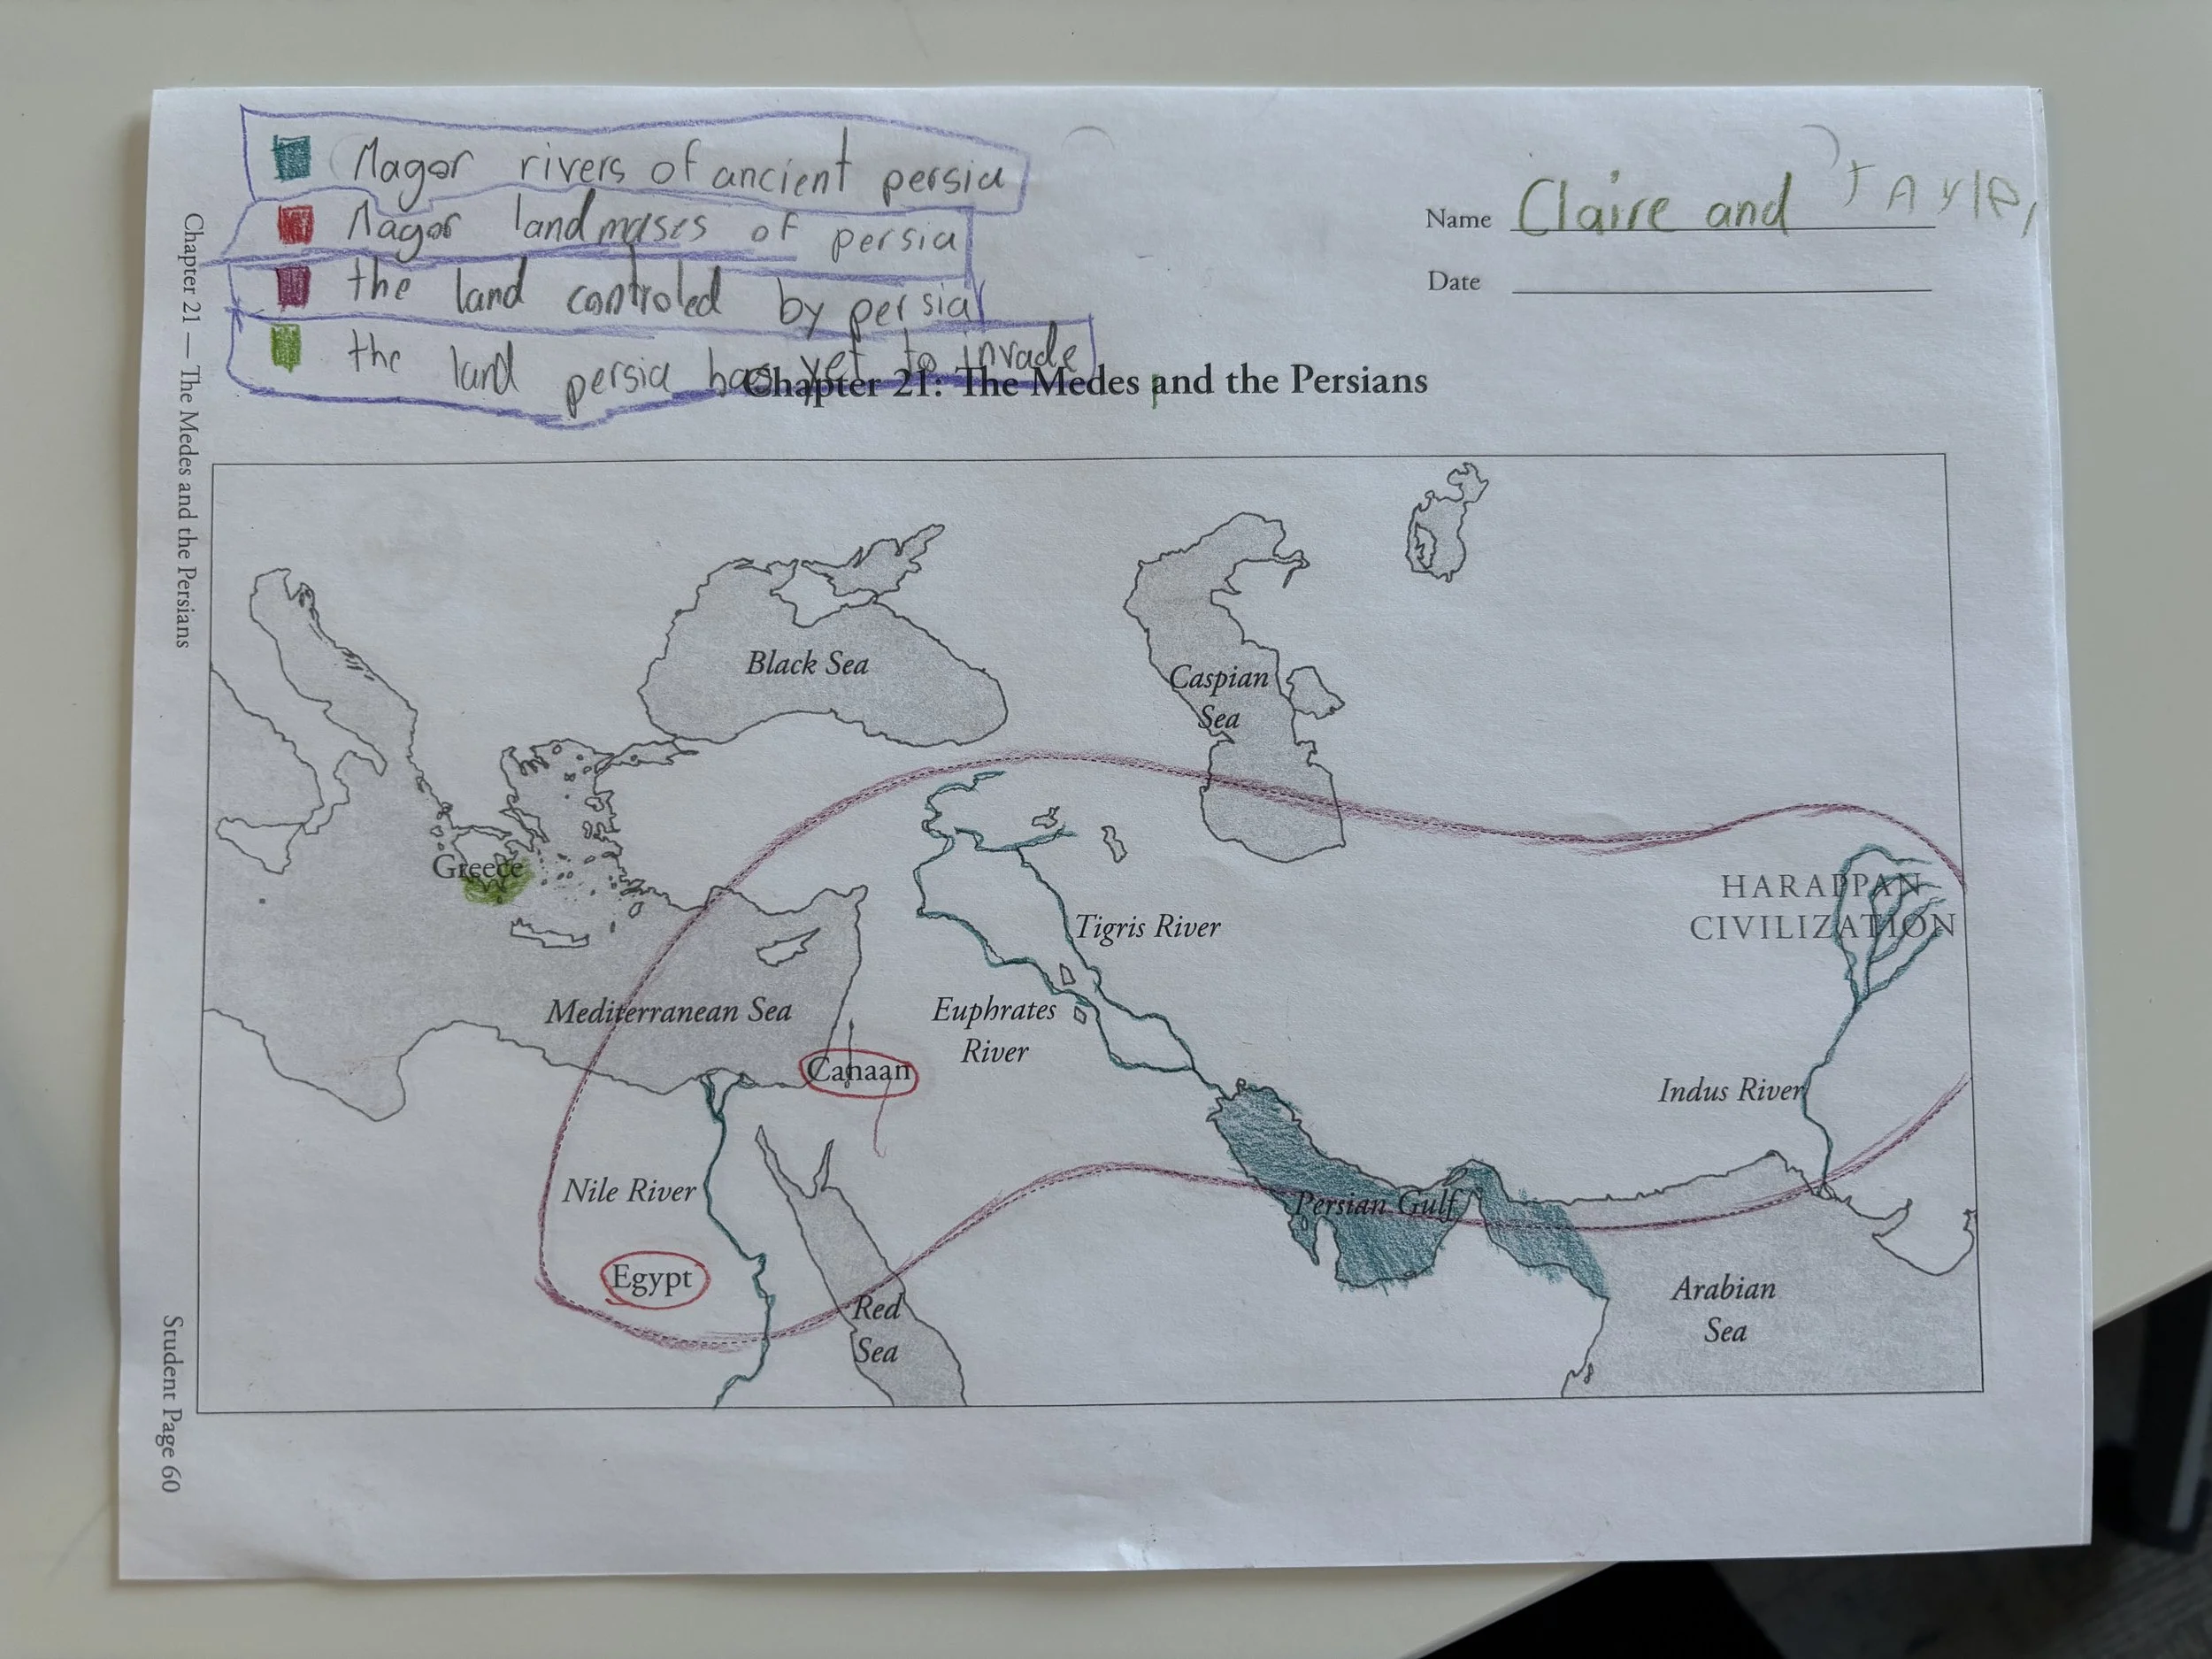 Magor rivers of ancient persia
Magor landmases of persia
the land controled by persia
the land persia has yet to invade
Name Claire and
Date
Chapter 21: The Medes and the Persians
Black Sea
Caspian
Sea
Greece
HARAPPAN
CIVILIZATION
Tigris River
Mediterranean Sea
Euphrates
River
Canaan
Indus River
Nile River
Persian Gulf
Egypt
Red
Sea
Arabian
Sea
Chapter 21 — The Medes and the Persians
Student Page 60